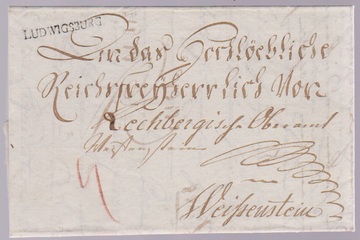 LUDWIGSBURG
An das Hochlöbliche
Reichsfreyherrlich Von
Rechbergische Oberamt
Weissenstein
in
Weißenstein